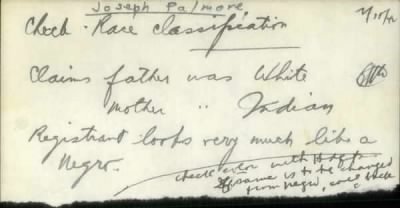 Joseph Palmore
Check - Race classification
Claims father was White
mother " Indian
Registrant looks very much like a
negro.
check even with
if same is to be changed
from negro,